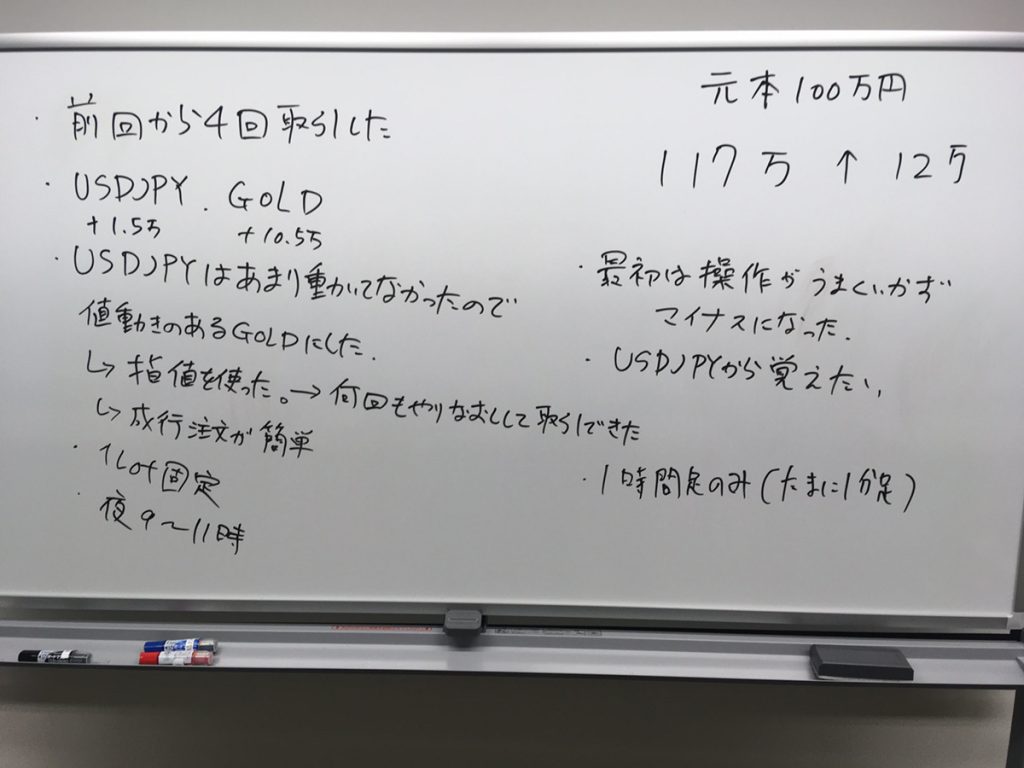 ・前回から4回取引した
・USDJPY. GOLD
+1.5万 +10.5万
・USDJPYはあまり動いてなかったので
値動きのあるGOLDにした.
↳指値を使った。→何回もやりなおしして取引できた
↳成行注文が簡単
・1Lot固定
・夜9〜11時
元本100万円
117万 ↑ 12万
・最初は操作がうまくいかず
マイナスになった.
・USDJPYから覚えたい,
・1時間足のみ(たまに1分足)